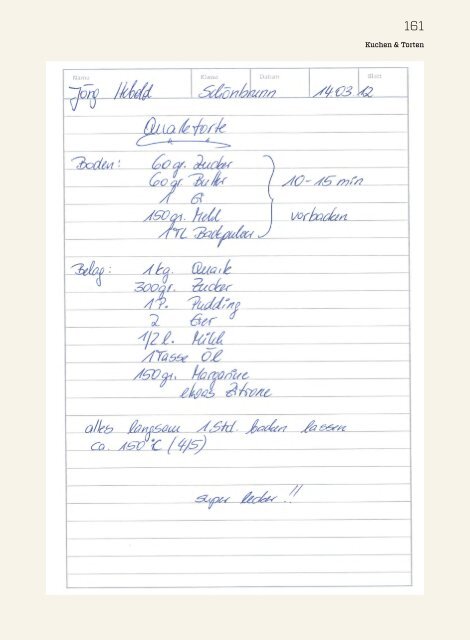 161
Kuchen & Torten
Name Klasse Datum Blatt
Jörg Schönbrunn 14.03.12
Quarktorte
Boden: 60 gr. Zucker
60 gr. Butter 10-15 min
1 Ei
150 gr. Mehl vorbacken
1 TL Backpulver
Belag: 1 kg. Quark
300 gr. Zucker
1 P. Pudding
2 Eier
1/2 l. Milch
1 Tasse Öl
150 gr. Margarine
etwas Zitrone
alles langsam 1 Std. backen lassen
ca. 150°C (4/5)
super lecker!!